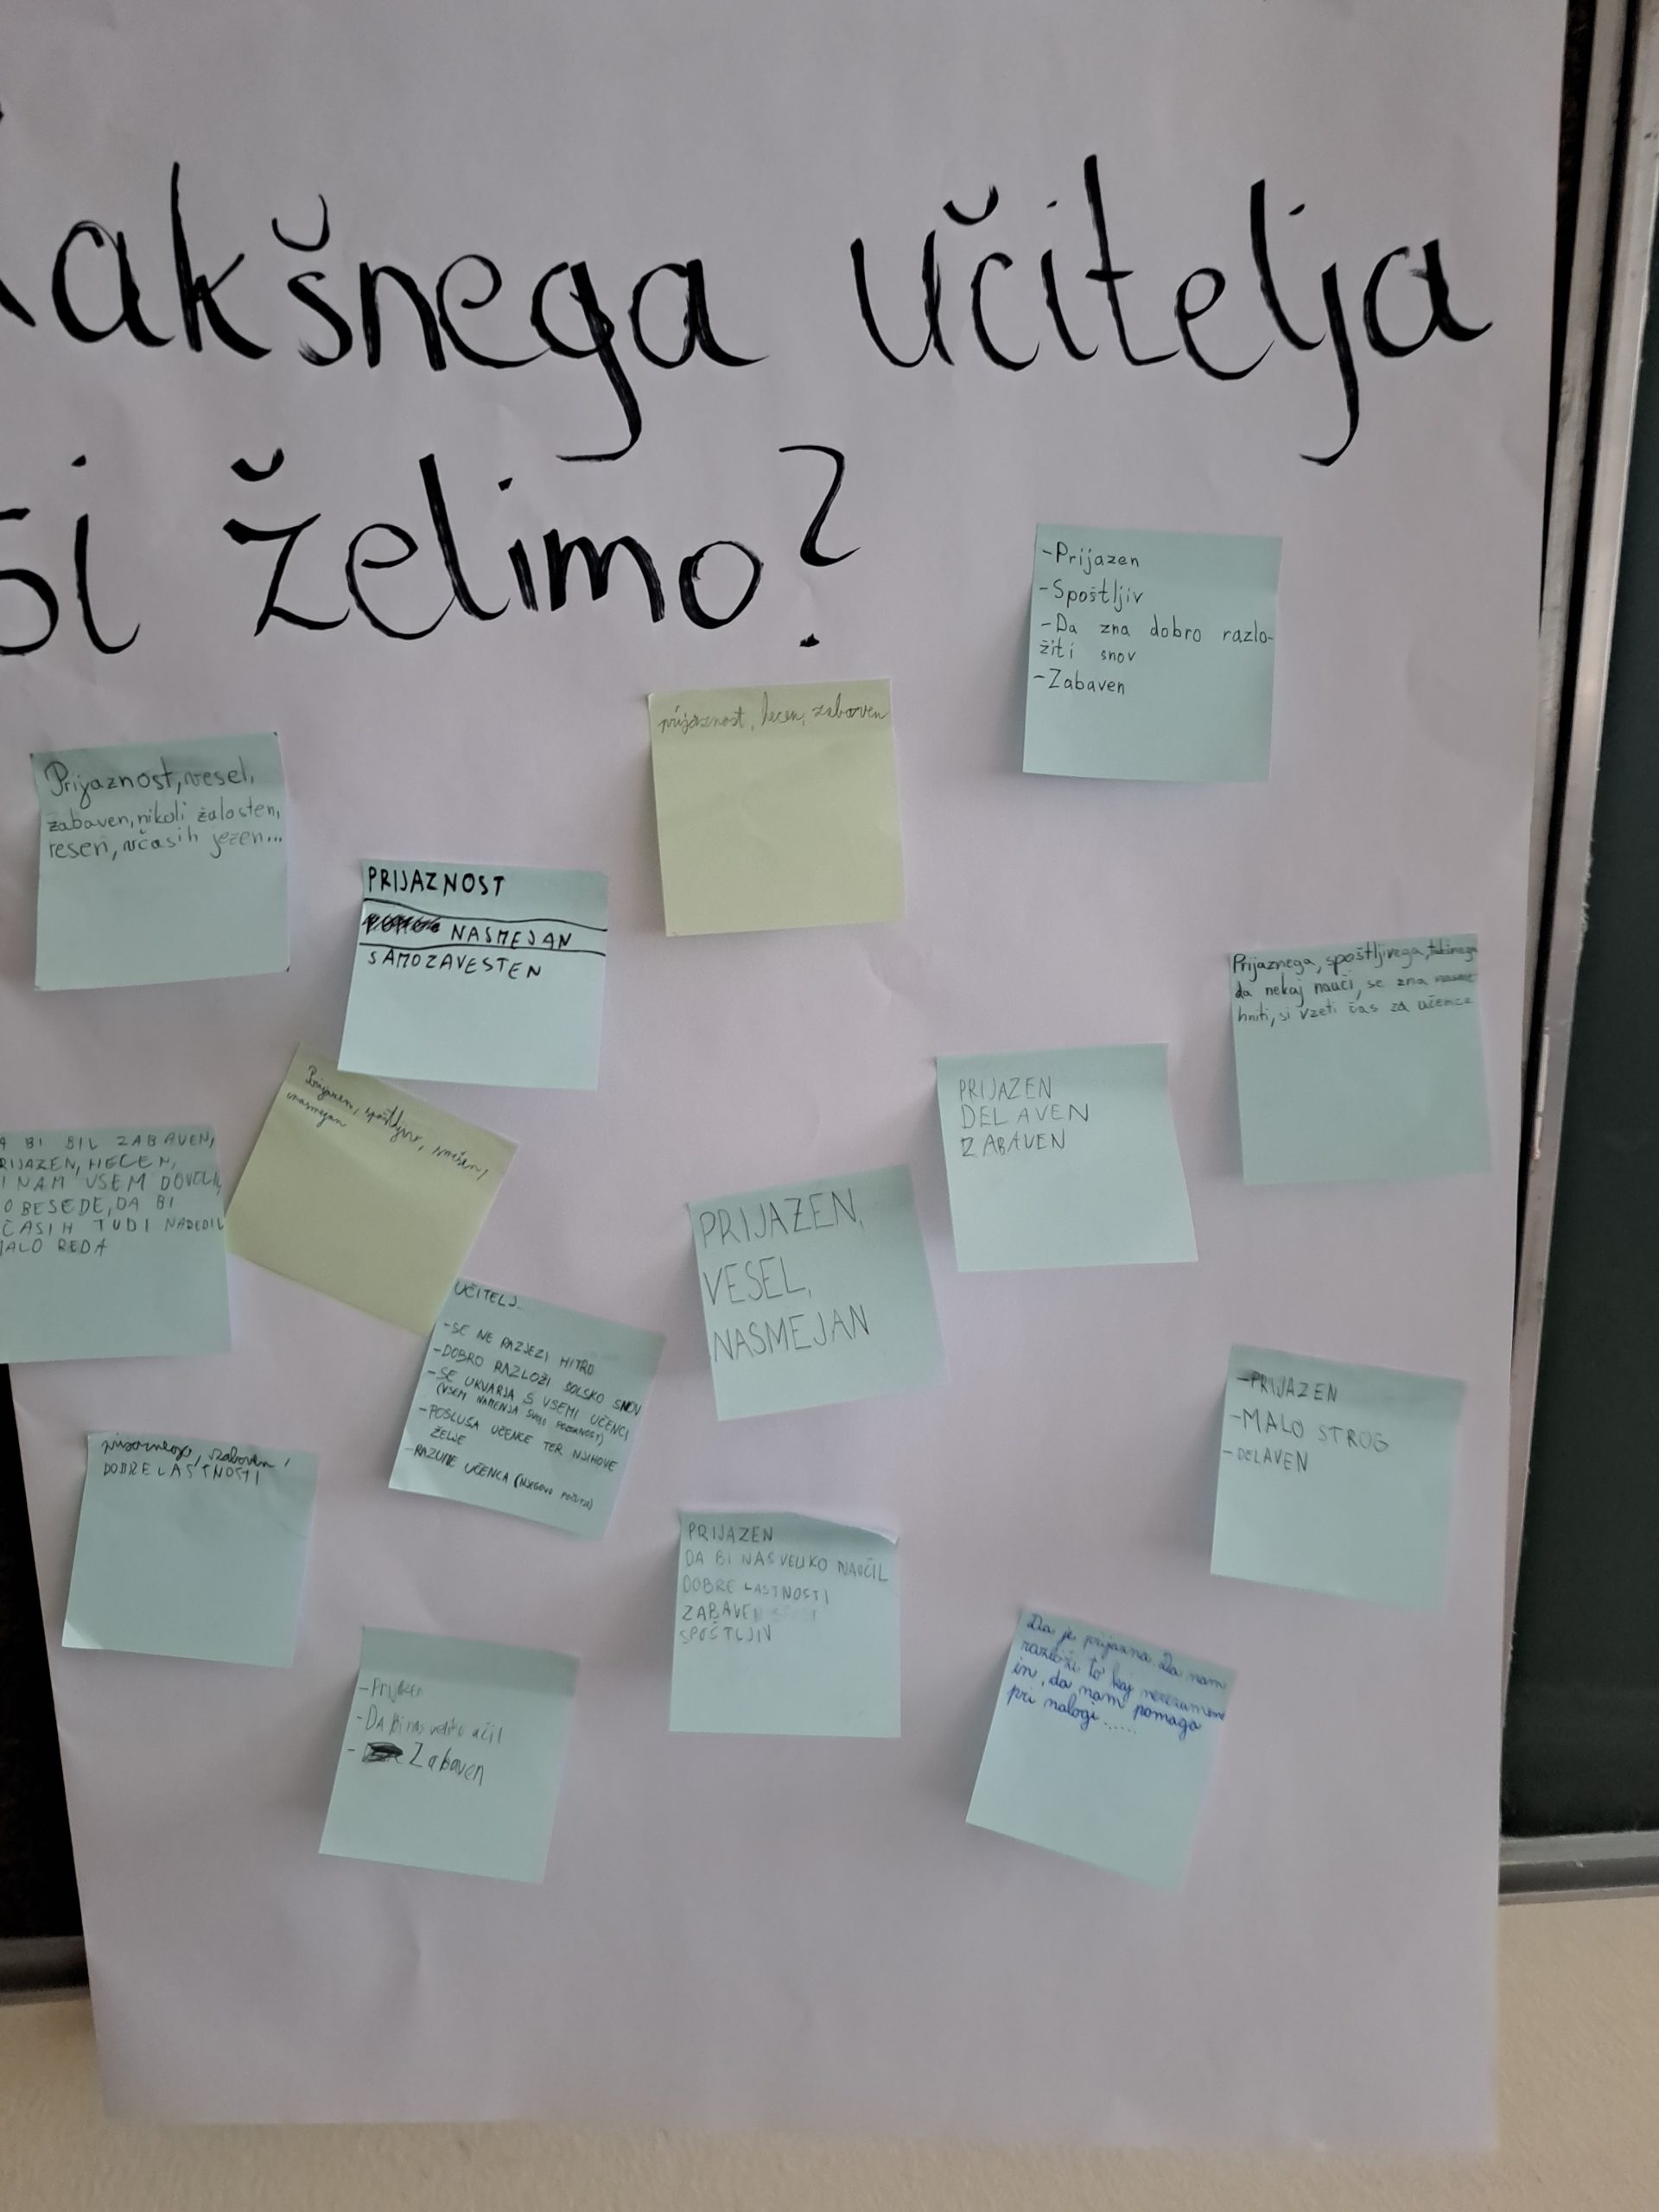 akšnega učitelja
si želimo?
-Prijazen
-Spoštljiv
-Da zna dobro razlo-
žiti snov
-Zabaven
prijaznost, hecen, zabaven
Prijaznost, vesel,
zabaven, nikoli žalosten,
resen, včasih jezen...
PRIJAZNOST
NASMEJAN
SAMOZAVESTEN
Prijaznega, spoštljivega,
da nekaj nauči, se zna nasme
hniti, si vzeti čas za učence
Prijazen, spoštljiv, smešen,
nasmejan
PRIJAZEN
DELAVEN
ZABAVEN
A BI BIL ZABAVEN,
RIJAZEN, HECEN,
I NAM VSEM DOVOLIL
O BESEDE, DA BI
ČASIH TUDI NAREDIL
MALO REDA
PRIJAZEN,
VESEL,
NASMEJAN
UČITELJ
-SE NE RAZJEZI HITRO
-DOBRO RAZLOŽI ŠOLSKO SNOV
-SE UKVARJA S VSEMI UČENCI
(VSEM NAMENJA SVOJO POZORNOST)
-POSLUŠA UČENCE TER NJIHOVE
ŽELJE
-RAZUME UČENCA (NJEGOVO POČUTJE)
-PRIJAZEN
-MALO STROG
-DELAVEN
zabaven,
DOBRE LASTNOSTI
PRIJAZEN
DA BI NAS VELIKO NAUČIL
DOBRE LASTNOSTI
ZABAVEN
SPOŠTLJIV
Da je prijazna. Da nam
razloži to kaj nerazumemo
in, da nam pomaga
pri nalogi.....
-Prijazen
-Da bi nas veliko učil
- Zabaven